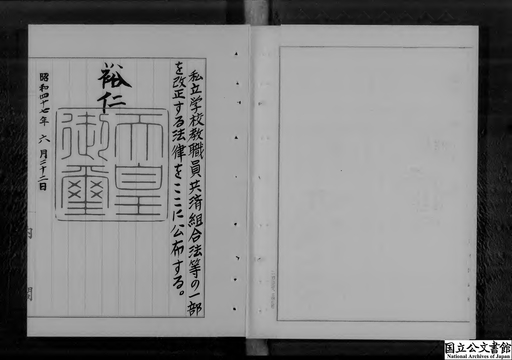 私立学校教職員共済組合法等の一部
を改正する法律をここに公布する。
裕仁
天皇
御璽
昭和四十七年 六月二十二日
内閣
国立公文書館
National Archives of Japan